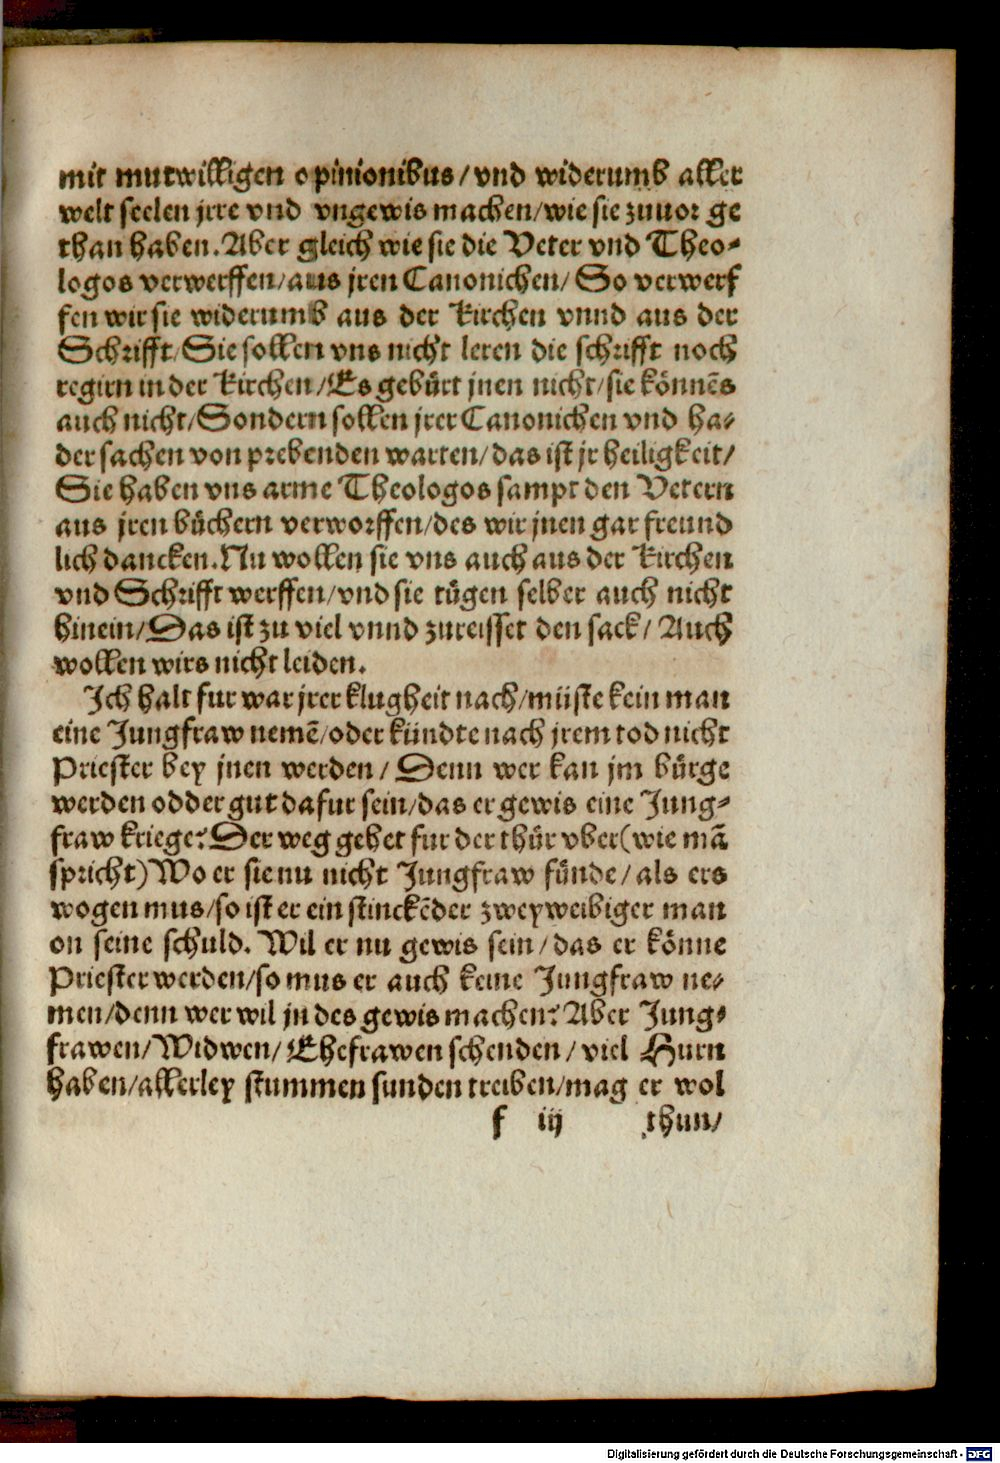 mit mutwilligen opinionibus/vnd widerumb aller
welt seelen jrre vnd vngewis machen/wie sie zuuor ge
than haben. Aber gleich wie sie die Veter vnd Theo-
logos verwerffen/aus jren Canonichen/ So verwerf
fen wir sie widerumb aus der Kirchen vnnd aus der
Schrifft/Sie sollen vns nicht leren die schrifft noch
regirn in der Kirchen/Es gebürt jnen nicht/sie könnẽs
auch nicht/Sondern sollen jrer Canonichen vnd ha-
der sachen von prebenden warten/das ist jr heiligkeit/
Sie haben vns arme Theologos sampt den Vetern
aus jren büchern verworffen/des wir jnen gar freund
lich dancken. Nu wollen sie vns auch aus der Kirchen
vnd Schrifft werffen/vnd sie tügen selber auch nicht
hinein/Das ist zu viel vnnd zureisset den sack/ Auch
wollen wirs nicht leiden.
Ich halt fur war jrer klugheit nach/müste kein man
eine Jungfraw nemẽ/oder kündte nach jrem tod nicht
Priester bey jnen werden/ Denn wer kan jm bürge
werden odder gut dafur sein/das er gewis eine Jung-
fraw kriege? Der weg gehet fur der thür vber(wie mã
spricht)Wo er sie nu nicht Jungfraw fünde/als ers
wogen mus/so ist er ein stinckẽder zweyweibiger man
on seine schuld. Wil er nu gewis sein/das er könne
Priester werden/so mus er auch keine Jungfraw ne-
men/denn wer wil jn des gewis machen? Aber Jung-
frawen/Widwen/Ehefrawen schenden/viel Hurn
haben/allerley stummen sunden treiben/mag er wol
f iij thun/
Digitalisierung gefördert durch die Deutsche Forschungsgemeinschaft - DFG